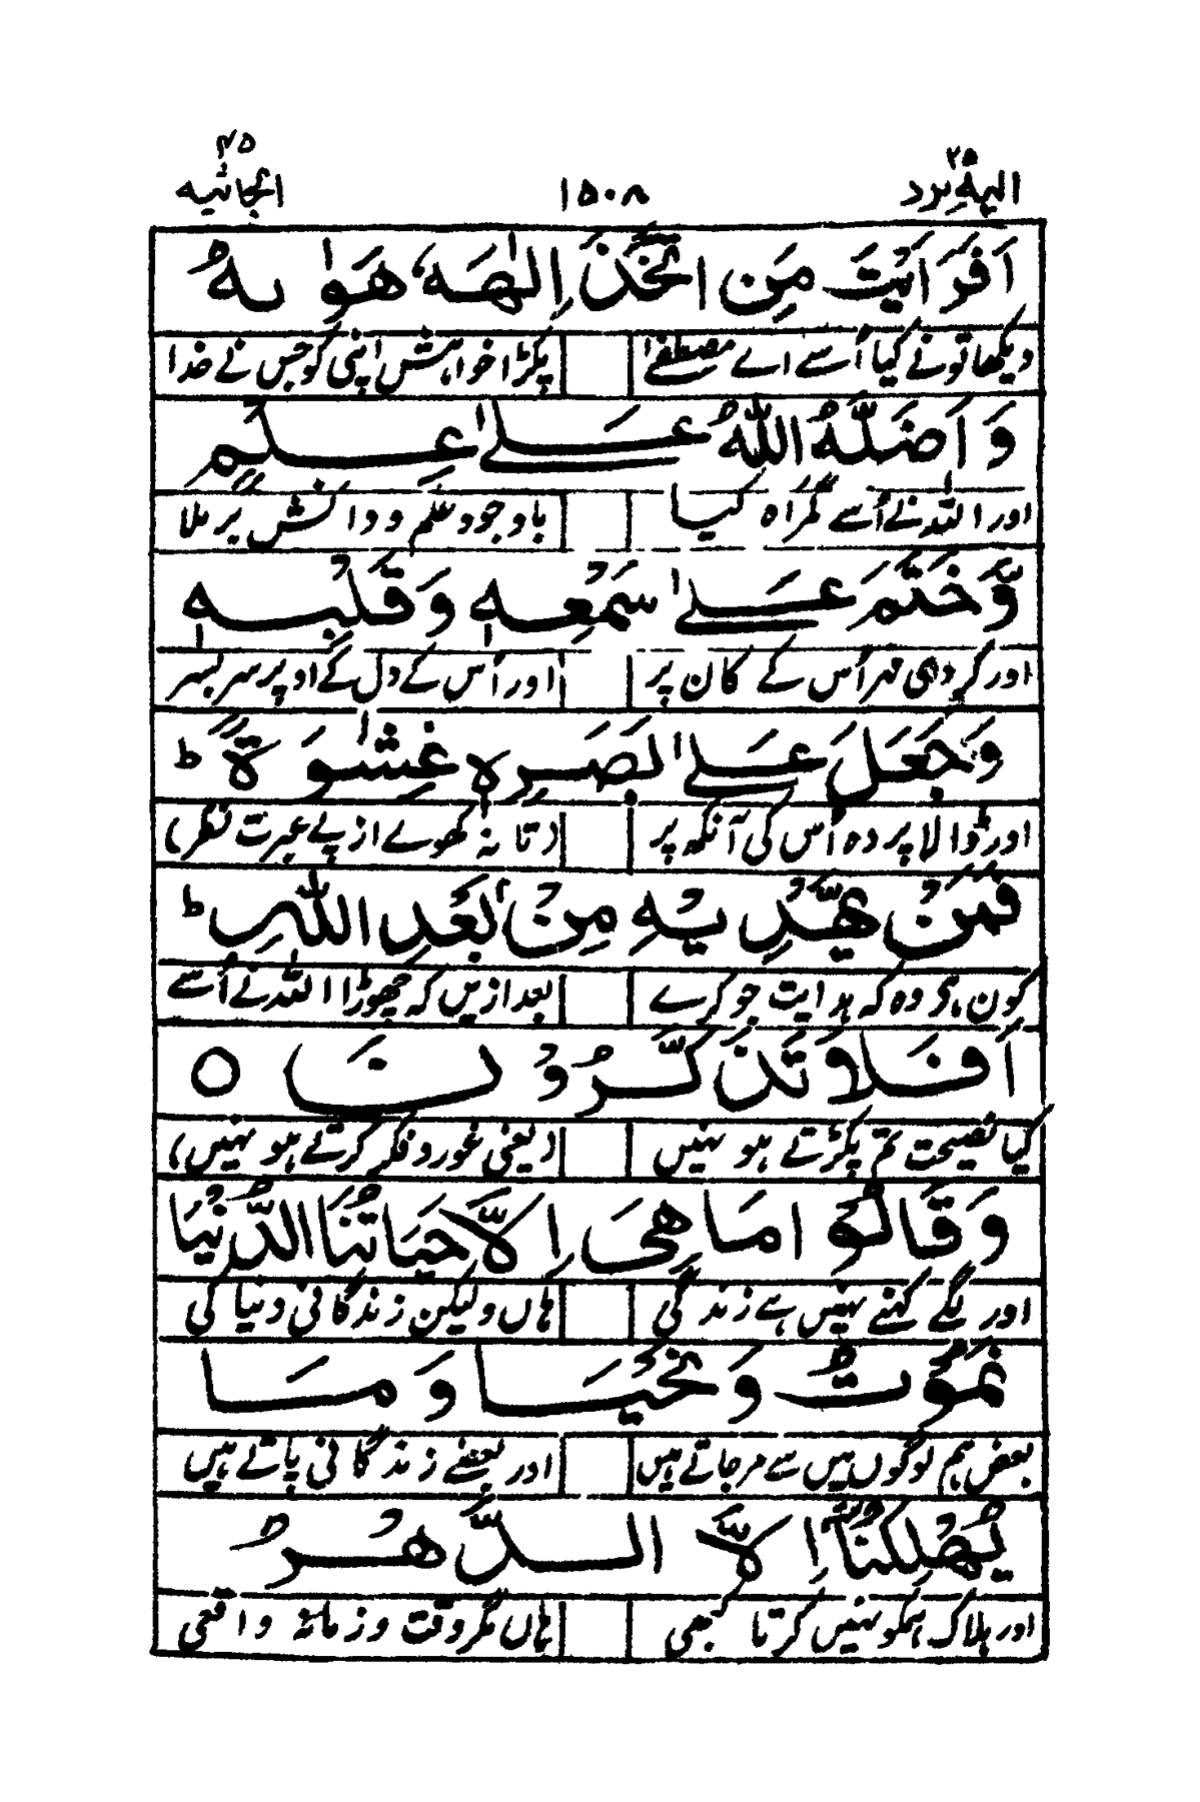 ۲۵ ۴۵
الیه یرد ۱۵۰۸ الجاثیه
اَفَرَاَیْتَ مَنِ اتَّخَذَ اِلٰهَهٗ هَوٰىهُ
دیکھا تو نے کیا اُسے اے مصطفےٰ پکڑا خواہش اپنی کو جس نے خدا
وَاَضَلَّهُ اللّٰهُ عَلٰى عِلْمٍ
اور اللہ نے اُسے گمراہ کیا باوجود علم و دانش بر ملا
وَّخَتَمَ عَلٰى سَمْعِهٖ وَقَلْبِهٖ
اور کر دی مہر اُس کے کان پر اور اُس کے دل کے اوپر سر بسر
وَجَعَلَ عَلٰى بَصَرِهٖ غِشٰوَةً ط
اور ڈالا پردہ اُس کی آنکھ پر (تا نہ کھولے از پے عبرت نظر)
فَمَنْ یَّهْدِیْهِ مِنْۢ بَعْدِ اللّٰهِ ط
کون ہی وہ کہ ہدایت جو کرے بعد ازیں کہ چھوڑا اللہ نے اُسے
اَفَلَا تَذَكَّرُوْنَ ○
کیا نصیحت تم پکڑتے ہو نہیں (یعنی غور و فکر کرتے ہو نہیں)
وَقَالُوْا مَا هِیَ اِلَّا حَیَاتُنَا الدُّنْیَا
اور لگے کہنے نہیں ہے زندگی ہاں ولیکن زندگانی دنیا کی
نَمُوْتُ وَنَحْیَا وَمَا
بعض ہم لوگوں میں سے مر جاتے ہیں اور بعضے زندگانی پاتے ہیں
یُهْلِكُنَاۤ اِلَّا الدَّهْرُ
اور ہلاک ہمکو نہیں کرتا کبھی ہاں مگر وقت و زمانہ واقعی